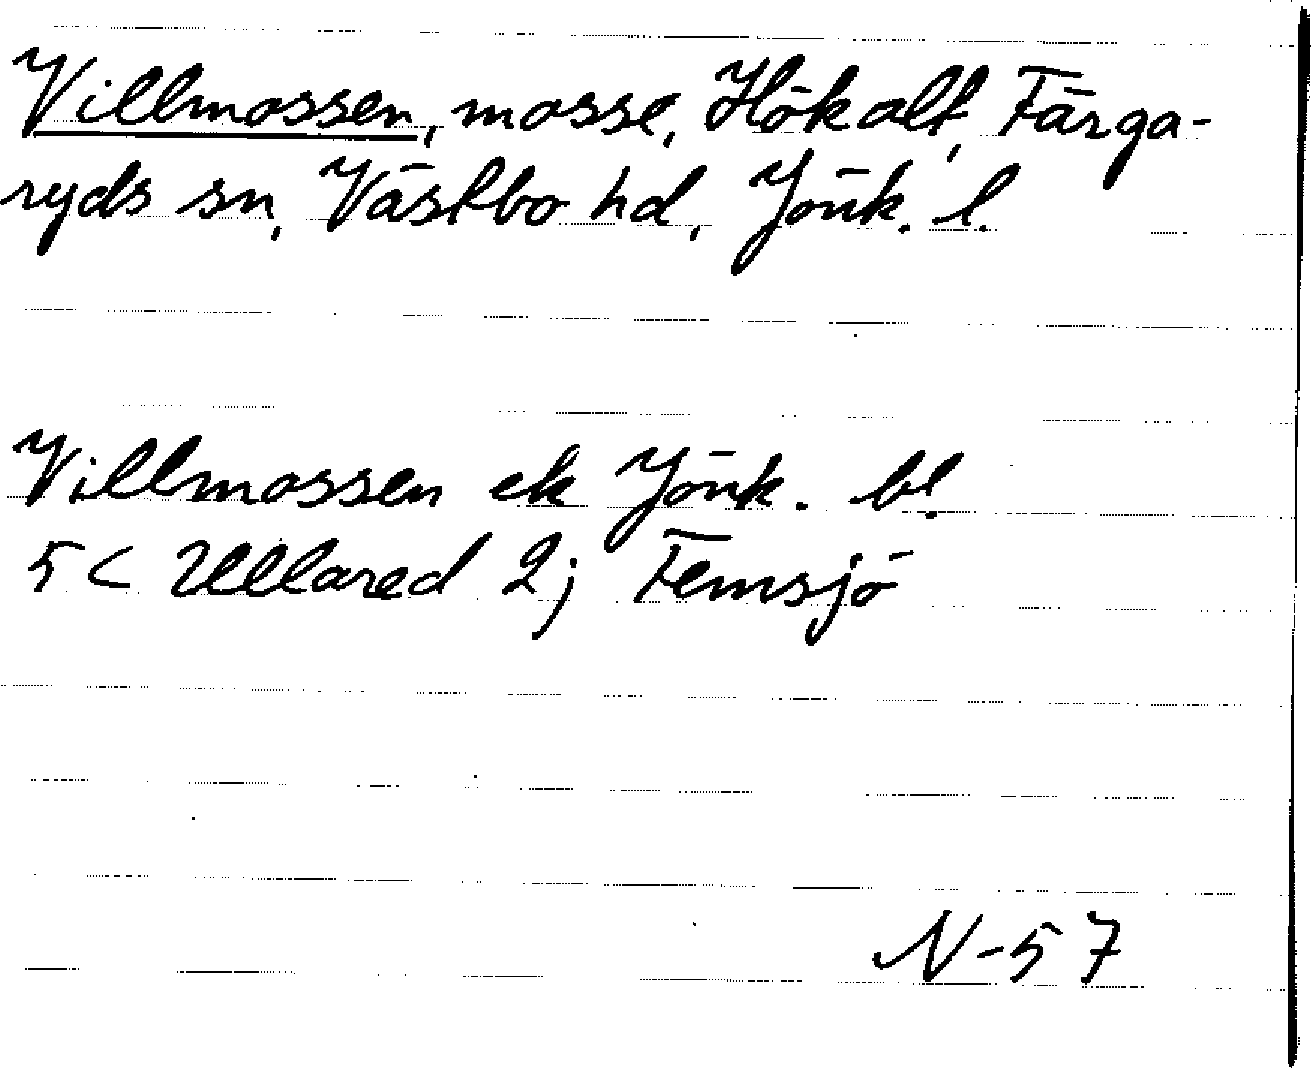 Villmossen, mosse, Hökalt, Färga-
ryds sn, Västbo hd, Jönk. l.
Villmossen ek Jönk. bl.
5C Ullared 2; Femsjö
N-57